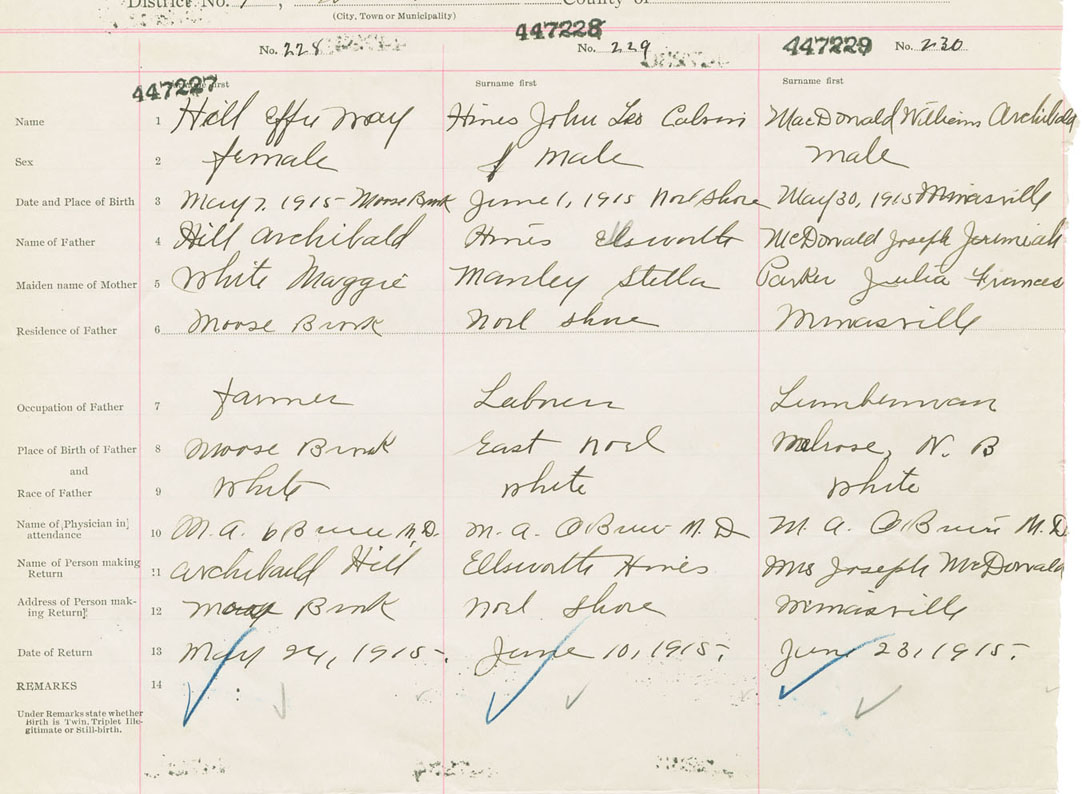 District No. 7, County of
(City, Town or Municipality)
447228
No. 228 No. 229 447229 No. 230
447227 Surname first Surname first
Name 1 Hill Effie May Hines John Leo Calvin MacDonald William Archibald
Sex 2 female male male
Date and Place of Birth 3 May 7, 1915 Moose Brook June 1, 1915 Noel Shore May 30, 1915 Minasville
Name of Father 4 Hill Archibald Hines Ellsworth McDonald Joseph Jeremiah
Maiden name of Mother 5 White Maggie Manley Stella Parker Julia Frances
Residence of Father 6 Moose Brook Noel Shore Minasville
Occupation of Father 7 farmer Laborer Lumberman
Place of Birth of Father 8 Moose Brook East Noel Melrose, N. B
and
Race of Father 9 White White White
Name of Physician in attendance 10 M. A. O'Brien M.D. M. A. O'Brien M. D M. A. O'Brien M. D
Name of Person making Return 11 Archibald Hill Ellsworth Hines Mrs Joseph McDonald
Address of Person making Return 12 Moose Brook Noel Shore Minasville
Date of Return 13 May 24, 1915. June 10, 1915. June 23, 1915.
REMARKS 14
Under Remarks state whether
Birth is Twin, Triplet Ille-
gitimate or Still-birth.